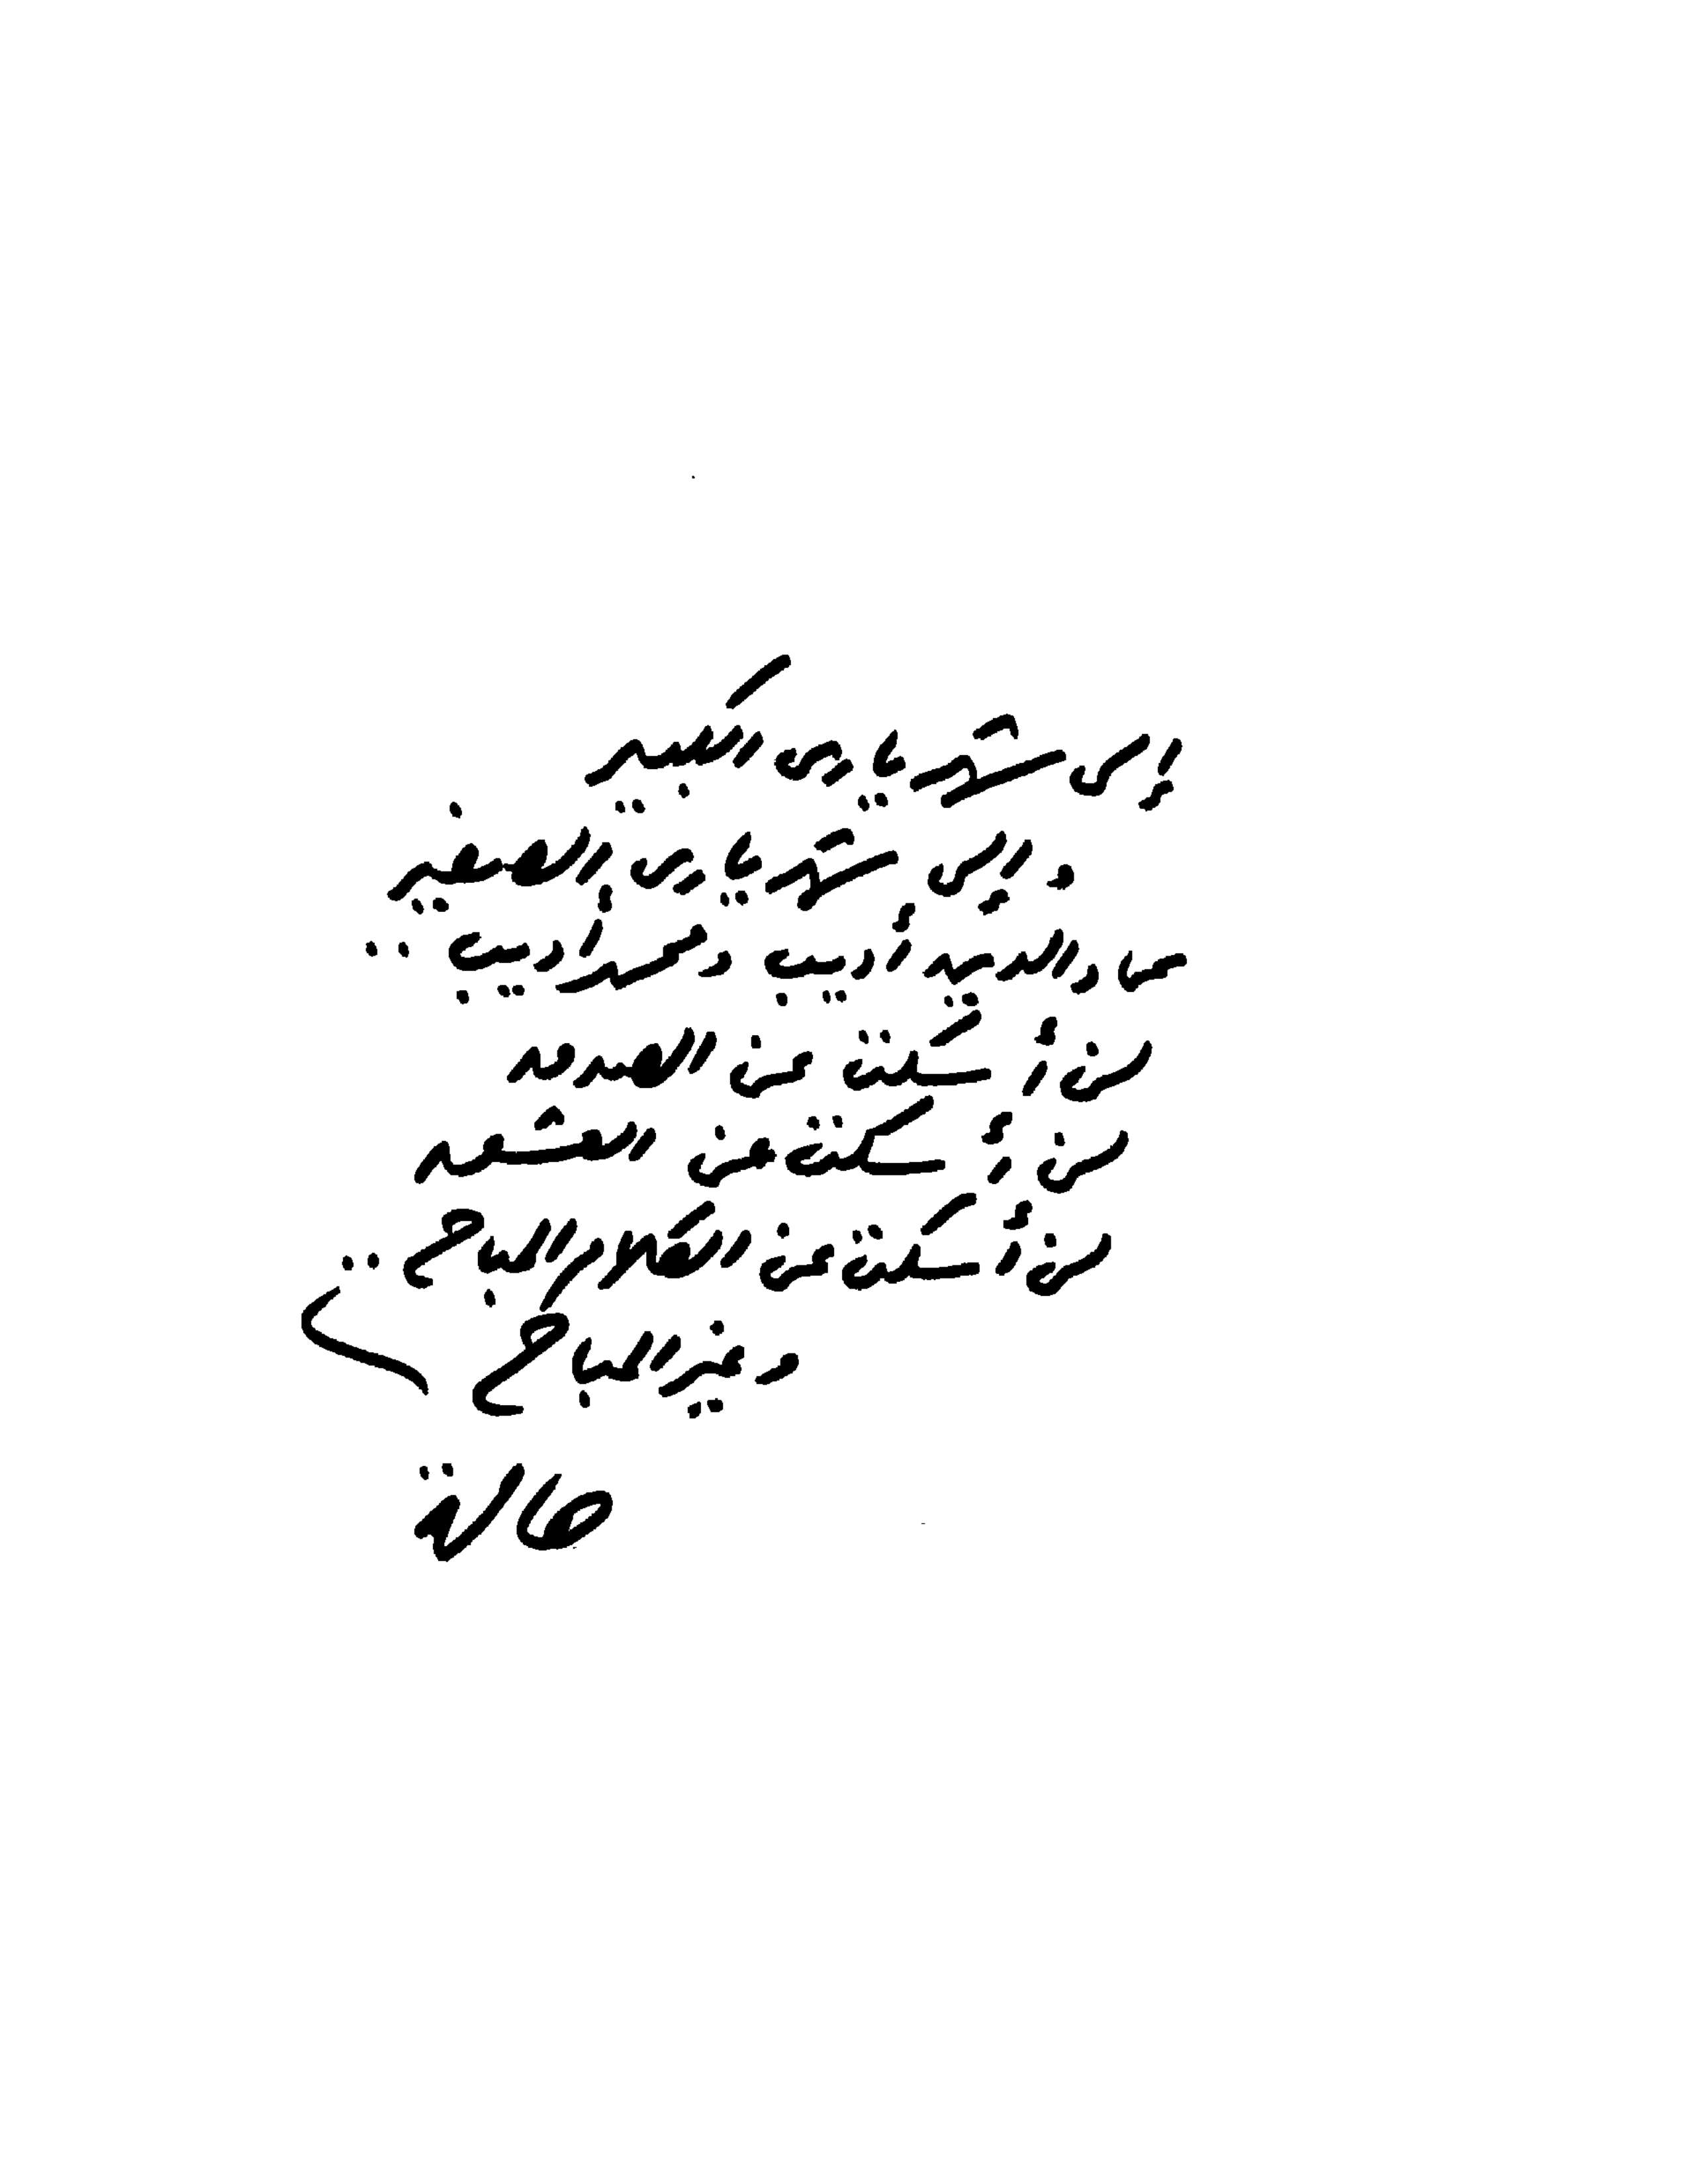 إلى شهرياري الكبير
و إلى شهرياري الصغير
عماد الدين أديب ومحمد أديب ..
لن أسكت عن الصدق
لن أسكت عن العشق
لن أسكت عن الكلام المباح ..
وغير المباح
هالة